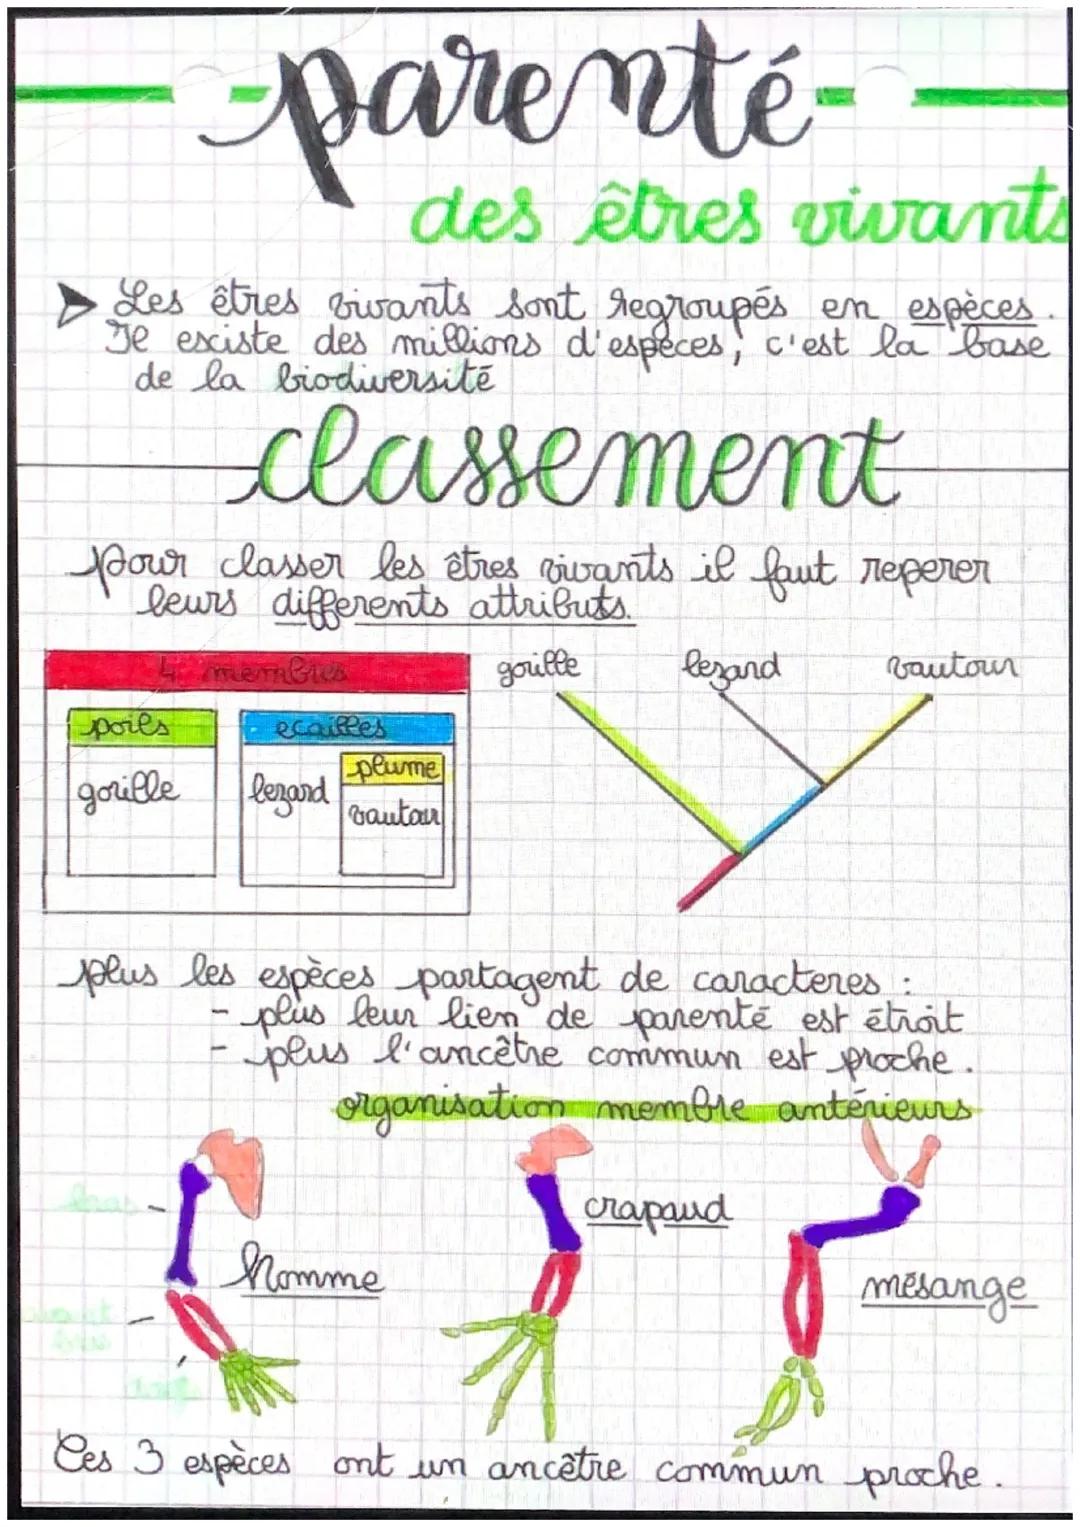 parenté
des êtres vivants
Les êtres vivants sont regroupés en espèces.
Il existe des millions d'espèces, c'est la base
de la biodiversité
classement
pour classer les êtres vivants il faut reperer
leurs differents attributs.
4 membres
gorille lezard vautour
poils ecailles
plume
gorille lezard
vautour
plus les espèces partagent de caracteres :
- plus leur lien de parenté est étroit
- plus l'ancêtre commun est proche.
organisation membre antérieurs
crapaud
homme
mésange
Ces 3 espèces ont un ancêtre commun proche.